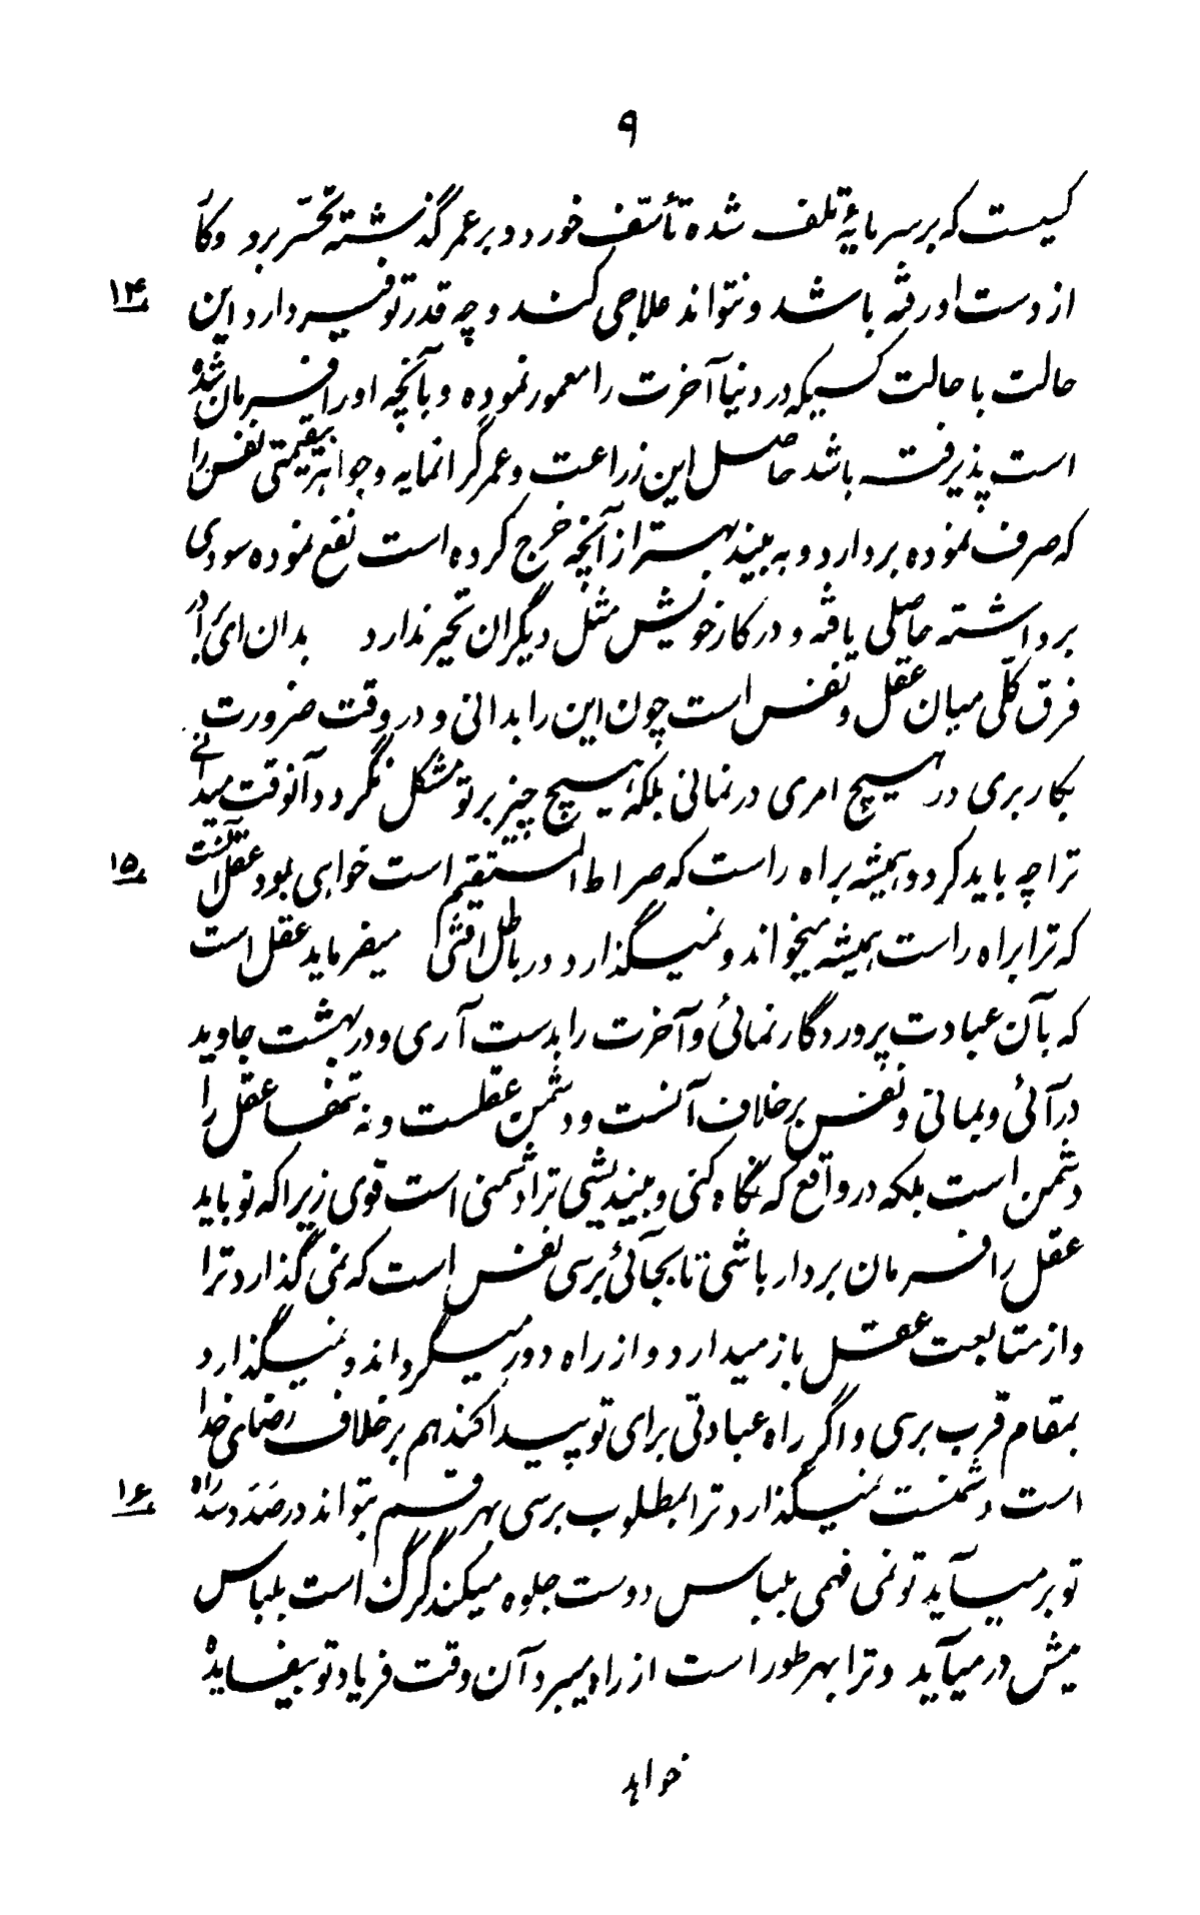 ۹
کسیست که بر سرمایهٔ تلف شده تأسّف خورد و بر عمر گذشته تحسّر برد و کار
از دست او رفته باشد و نتواند علاجی کند و چه قدر توفیر دارد این
۱۴
حالت با حالت کسیکه در دنیا آخرت را معمور نموده و بآنچه او را فرمان شده
است پذیرفته باشد حاصل این زراعت و عمر گرانمایه و جواهر بیقیمتی نفس را
که صرف نموده بردارد و به بیند بهتر از آنچه خرج کرده است نفع نموده سودی
برداشته حاصلی یافته و در کار خویش مثل دیگران تحیر ندارد بدان ای برادر
فرق کلّی میان عقل و نفس است چون این را بدانی و در وقت ضرورت
بکار بری در هیچ امری در نمانی بلکه هیچ چیز بر تو مشکل نگردد و آنوقت میدانی
ترا چه باید کرد و همیشه براه راست که صراط المستقیم است خواهی بود عقل آنست
۱۵
که ترا براه راست همیشه میخواند و نمیگذارد در باطل افتی میفرماید عقل است
که بآن عبادت پروردگار نمائی و آخرت را بدست آری و در بهشت جاوید
در آئی و بمانی و نفس بر خلاف آنست و دشمن عقلست و نه تنها عقل را
دشمن است بلکه در واقع که نگاه کنی و بیندیشی ترا دشمنی است قوی زیرا که تو باید
عقل را فرمان بردار باشی تا بجائی برسی نفس است که نمی گذارد ترا
و از متابعت عقل باز میدارد و از راه دور میگرداند و نمیگذارد
بمقام قرب برسی و اگر راه عبادتی برای تو پیدا کند هم بر خلاف رضای خدا
است دشمنست نمیگذارد ترا بمطلوب برسی بهر قسم بتواند در صَدَد سدّ راه
۱۶
تو بر میآید تو نمی فهمی بلباس دوست جلوه میکند گرگ است بلباس
میش در میآید و ترا بهر طور است از راه میبرد آن وقت فریاد تو بیفایده
خواهد